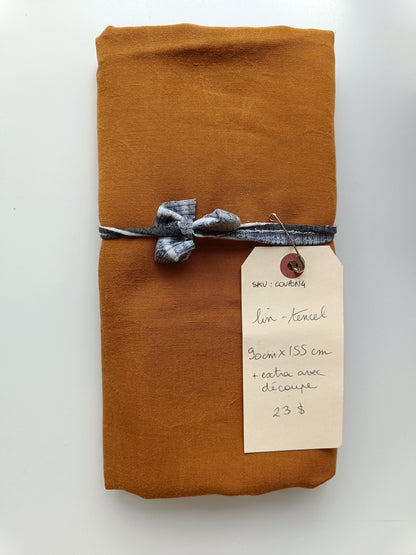 SKU : COUPON4
lin - tencel
90cm x 155 cm
+ extra avec
découpe
23 $